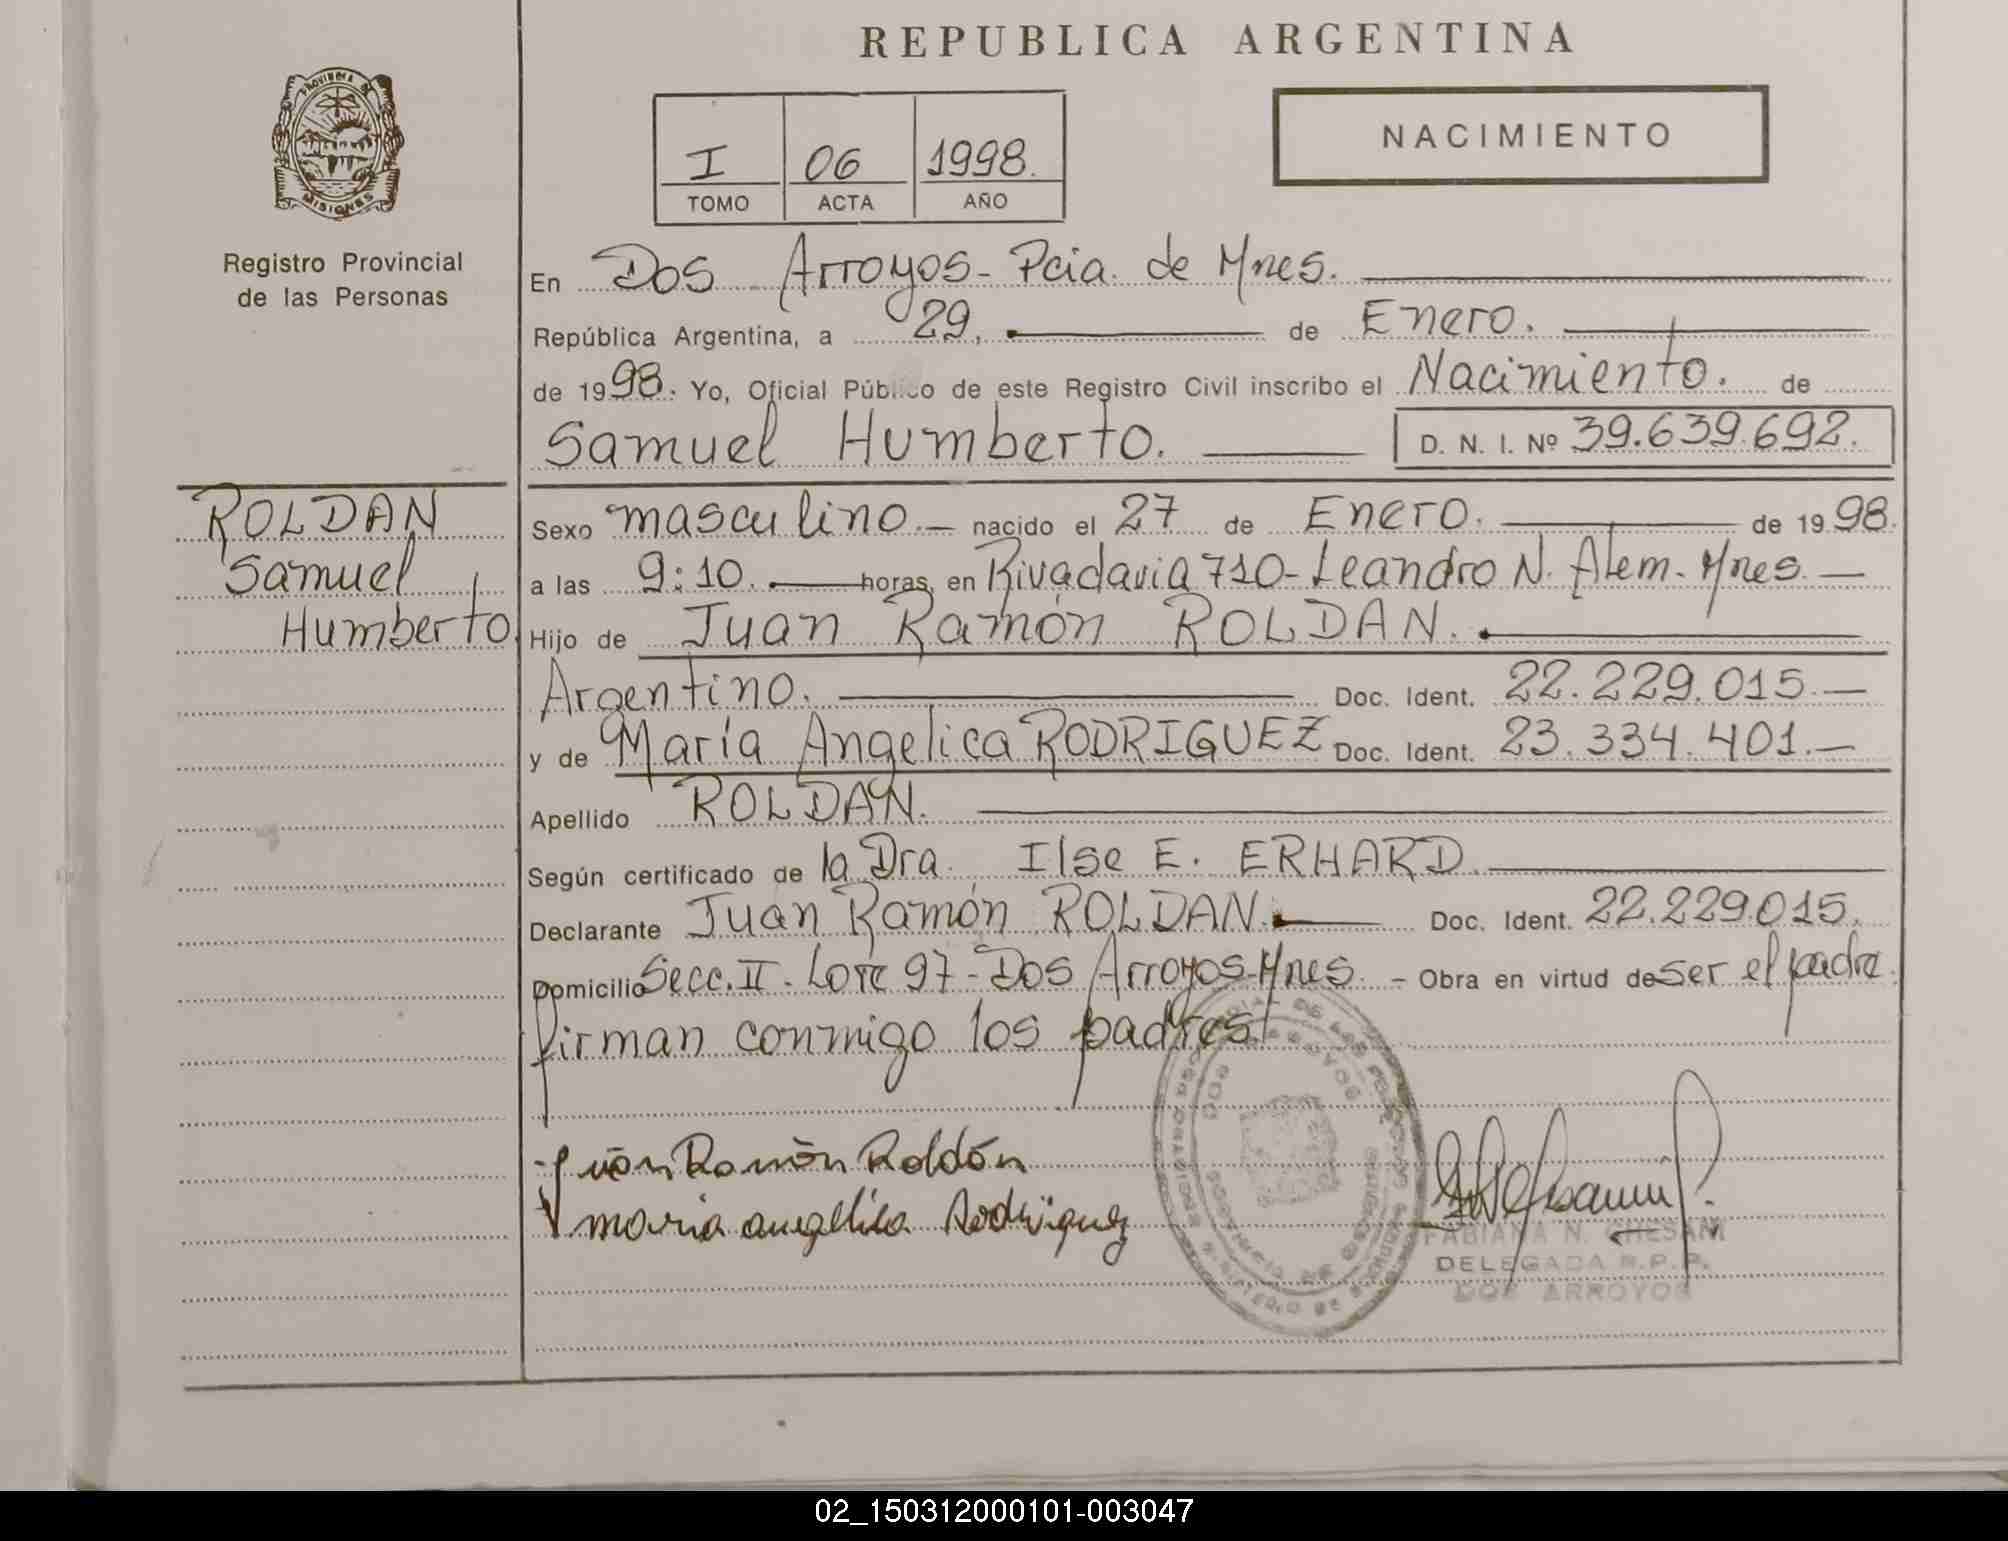 REPUBLICA ARGENTINA
PROVINCIA DE
MISIONES
Registro Provincial
de las Personas
I 06 1998.
TOMO ACTA AÑO
NACIMIENTO
En Dos Arroyos - Pcia. de Mnes.
República Argentina, a 29. de Enero.
de 1998. Yo, Oficial Público de este Registro Civil inscribo el Nacimiento. de
Samuel Humberto. D. N. I. Nº 39.639.692.
ROLDAN
Samuel
Humberto
Sexo masculino.- nacido el 27 de Enero. de 1998.
a las 9:10. horas, en Rivadavia 710 - Leandro N. Alem - Mnes.-
Hijo de Juan Ramón ROLDAN.
Argentino. Doc. Ident. 22.229.015.-
y de María Angelica RODRIGUEZ Doc. Ident. 23.334.401.-
Apellido ROLDAN.
Según certificado de la Dra. Ilse E. ERHARD.
Declarante Juan Ramón ROLDAN. Doc. Ident. 22.229.015.
Domicilio Secc. II. Lote 97 - Dos Arroyos - Mnes. - Obra en virtud de ser el padre.
firman conmigo los padres
Juan Ramón Roldón
maria angelica Rodriguez
FABIANA N. CHESANI
DELEGADA R.P.P.
DOS ARROYOS
02_150312000101-003047